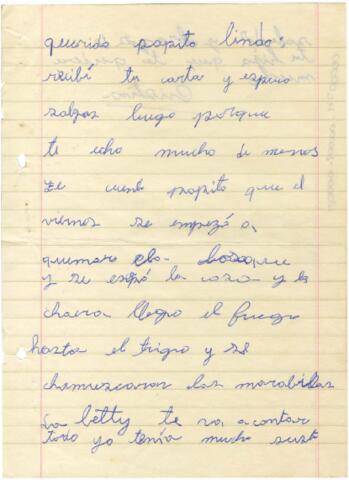 querido papito lindo:
recibí tu carta y espero
salgas luego porque
te echo mucho de menos
Te cuento papito que el
viernes se empezó a
quemar el bosque
y se la casa y la
chacra llego el fuego
hasta el trigo y se
chamuscaron las marabillas
La betty te va acontar
todo yo tenía mucho sust